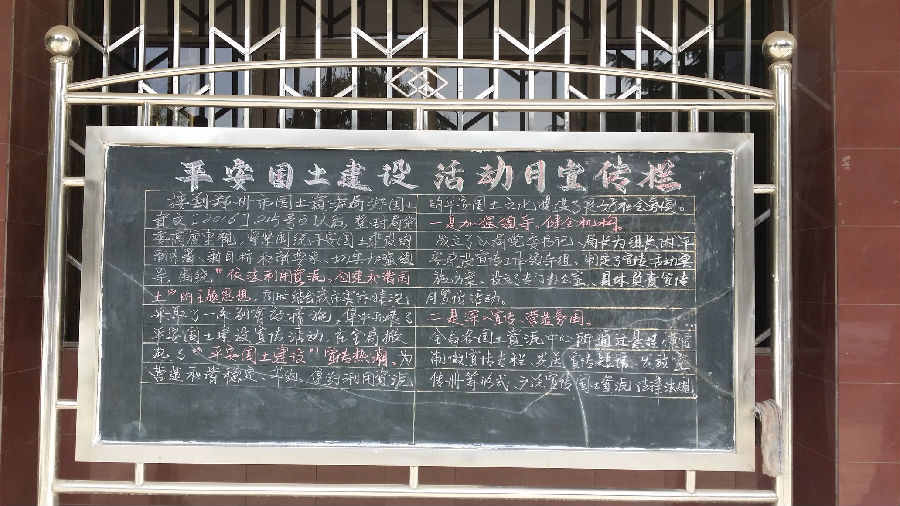 平安国土建设 活动月宣传栏
深刻郑州市国土资源局郑国土
资文〔2016〕 号文以后，登封局党
委高度重视，紧紧围绕平安国土建设的
新 、新目标和新要求，切实加强领
导，围绕“依法利用资源，创建和谐国
土”的主题思想，同时结合我市实际情况，
采取了一系列有效措施，集中开展了
平安国土建设宣传活动，在全局掀
起了“平安国土建设”宣传热潮，为
营造和谐稳定、节约、集约利用资源
的平安国土文化推进了良好社会氛围。
一是加强领导，健全机构。
成立了以局党委书记、局长为组长的平
安 宣传工作领导组，制定了宣传活动实
施方案，设立专门办公室，具体负责宣传
月宣传活动。
二是深入宣传，营造氛围。
全局各国土资源中心所通过悬挂
制做宣传专栏，发送宣传短信，发放宣
传册等形式，广泛宣传国土资源法律法规